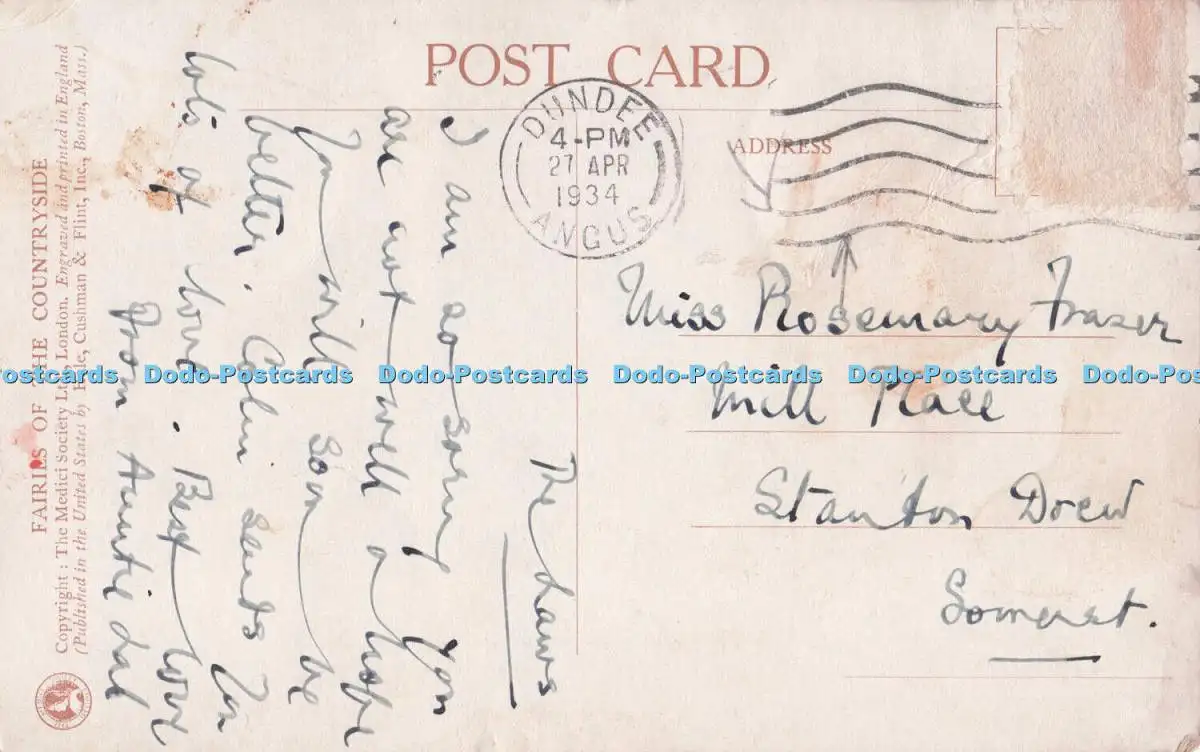 POST CARD
DUNDEE
4-PM
27 APR
1934
ANGUS
ADDRESS
Miss Rosemary Frazer
Mill Place
Stanton Drew
Somerset.
The Laws
I am so sorry you
are not well & hope
You will soon be
better. Colin sends You
lots of love. Best love
from Auntie
FAIRIES OF THE COUNTRYSIDE
Copyright: The Medici Society Ltd., London. Engraved and printed in England
(Published in the United States by Hale, Cushman & Flint, Inc., Boston, Mass.)
Dodo-Postcards Dodo-Postcards Dodo-Postcards Dodo-Postcards Dodo-Postcards